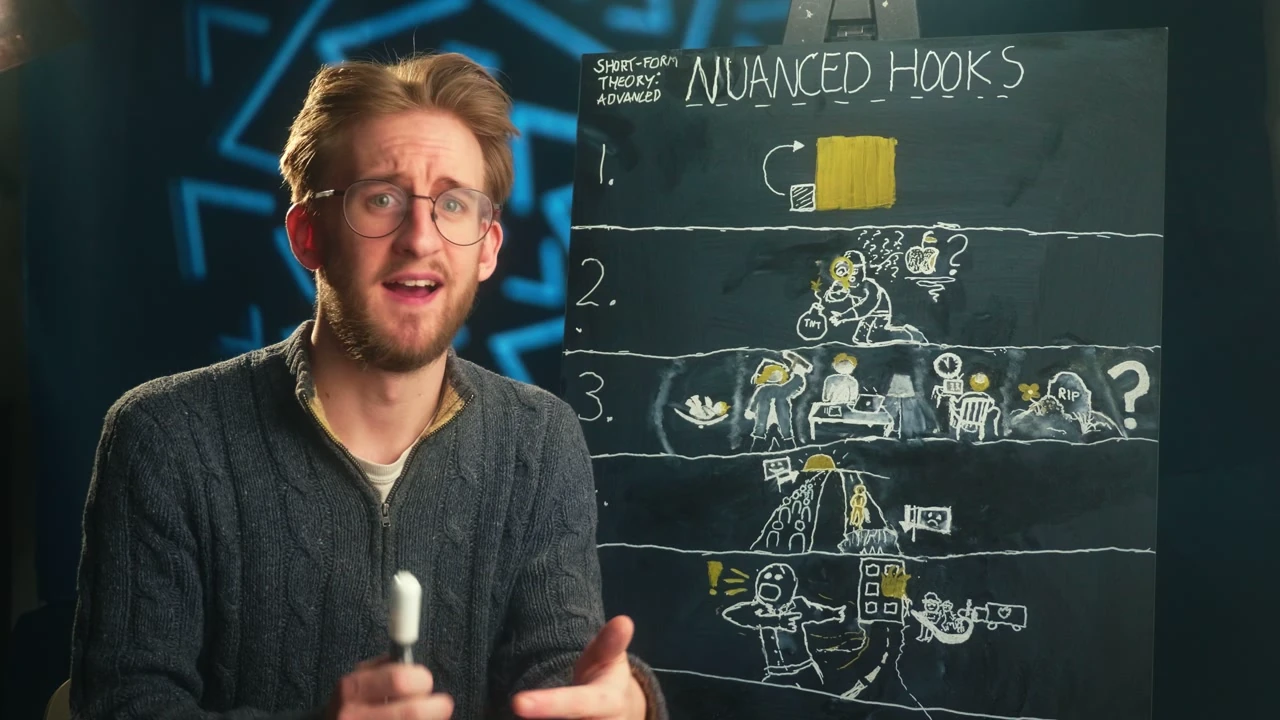 SHORT-FORM
THEORY:
ADVANCED
NUANCED HOOKS
1.
2.
?
? ? ? ? ? ?
TNT
3.
RIP
?
.
!